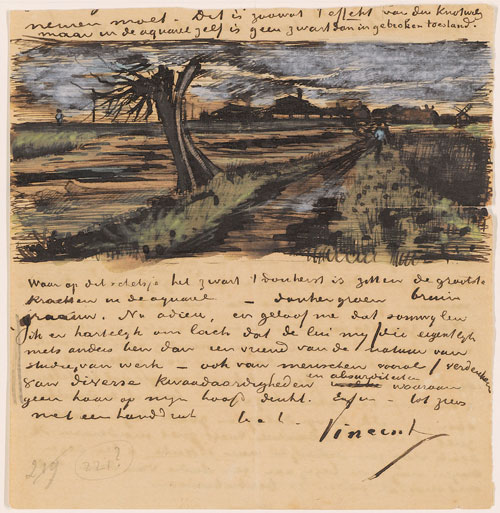 nemen moet. Dit is zoowat 't effect van den knotwilg
maar in de aquarel zelf is geen zwart dan in gebroken toestand.
Waar op dit schetsje het zwart 't donkerst is zitten de grootste
krachten in de aquarel – donkergroen bruin
graauw. Nu adieu, en geloof me dat somwylen
ik er hartelyk om lach dat de lui my /die eigentlyk
niets anders ben dan een vriend van de natuur van
studie, van werk – ook van menschen vooral/ verdenken
en absurditeiten
van diverse kwaadaardigheden waaraan
geen haar op myn hoofd denkt. Enfin – tot ziens
met een handdruk b. à. t.
Vincent
219 (221?)